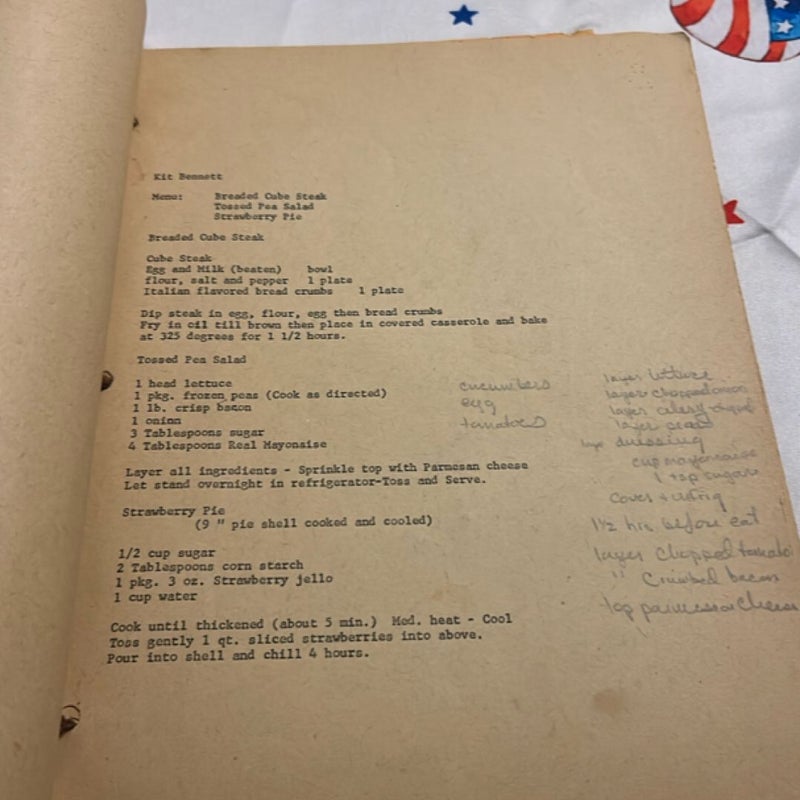 Kit Bennett
Menu: Breaded Cube Steak
Tossed Pea Salad
Strawberry Pie
Breaded Cube Steak
Cube Steak
Egg and Milk (beaten) bowl
flour, salt and pepper 1 plate
Italian flavored bread crumbs 1 plate
Dip steak in egg, flour, egg then bread crumbs
Fry in oil till brown then place in covered casserole and bake
at 325 degrees for 1 1/2 hours.
Tossed Pea Salad
1 head lettuce
1 pkg. frozen peas (Cook as directed)
1 lb. crisp bacon
1 onion
3 Tablespoons sugar
4 Tablespoons Real Mayonaise
cucumbers
egg
tomatoes
layer lettuce
layer chopped onion
layer celery
layer peas
dressing
cup mayonnaise
1 tsp sugar
Cover + refrig
1 1/2 hrs before eat
layer chopped tomato
" Crumbed bacon
top parmesan cheese
Layer all ingredients - Sprinkle top with Parmesan cheese
Let stand overnight in refrigerator-Toss and Serve.
Strawberry Pie
(9 " pie shell cooked and cooled)
1/2 cup sugar
2 Tablespoons corn starch
1 pkg. 3 oz. Strawberry jello
1 cup water
Cook until thickened (about 5 min.) Med. heat - Cool
Toss gently 1 qt. sliced strawberries into above.
Pour into shell and chill 4 hours.